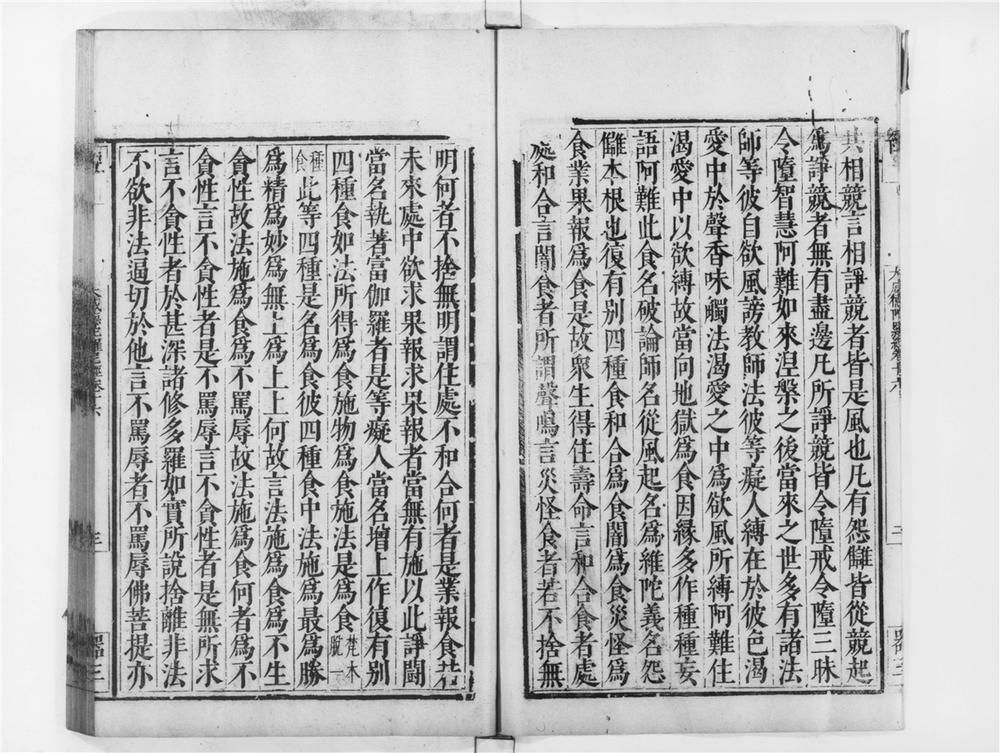 共相競言相諍競者皆是風也凡有怨讎皆從競起
爲諍競者無有盡邊凡所諍競皆令墮戒令墮三昧
令墮智慧阿難如來涅槃之後當來之世多有諸法
師等彼自欲風謗教師法彼等癡人縛在於彼色渴
愛中於聲香味觸法渴愛之中爲欲風所縛阿難住
渴愛中以欲縛故當向地獄爲食因緣多作種種妄
語阿難此食名破論師名從風起名爲維陀義名怨
讎本根也復有別四種食和合爲食闇爲食災怪爲
食業果報爲食是故衆生得住壽命言和合食者處
處和合言闇食者所謂聲鳴言災怪食者若不捨無
明何者不捨無明謂住處不和合何者是業報食若
未來處中欲求果報求果報者當無有施以此諍鬪
當名執著富伽羅者是等癡人當名增上作復有別
四種食如法所得爲食施物爲食施法是爲食梵本脫一
種食此等四種是名爲食彼四種食中法施爲最爲勝
爲精爲妙爲無上爲上上何故言法施爲食爲不生
貪性故法施爲食爲不罵辱故法施爲食何者爲不
貪性言不貪性者是不罵辱言不貪性者是無所求
言不貪性者於甚深諸修多羅如實所說捨離非法
不欲非法逼切於他言不罵辱者不罵辱佛菩提亦